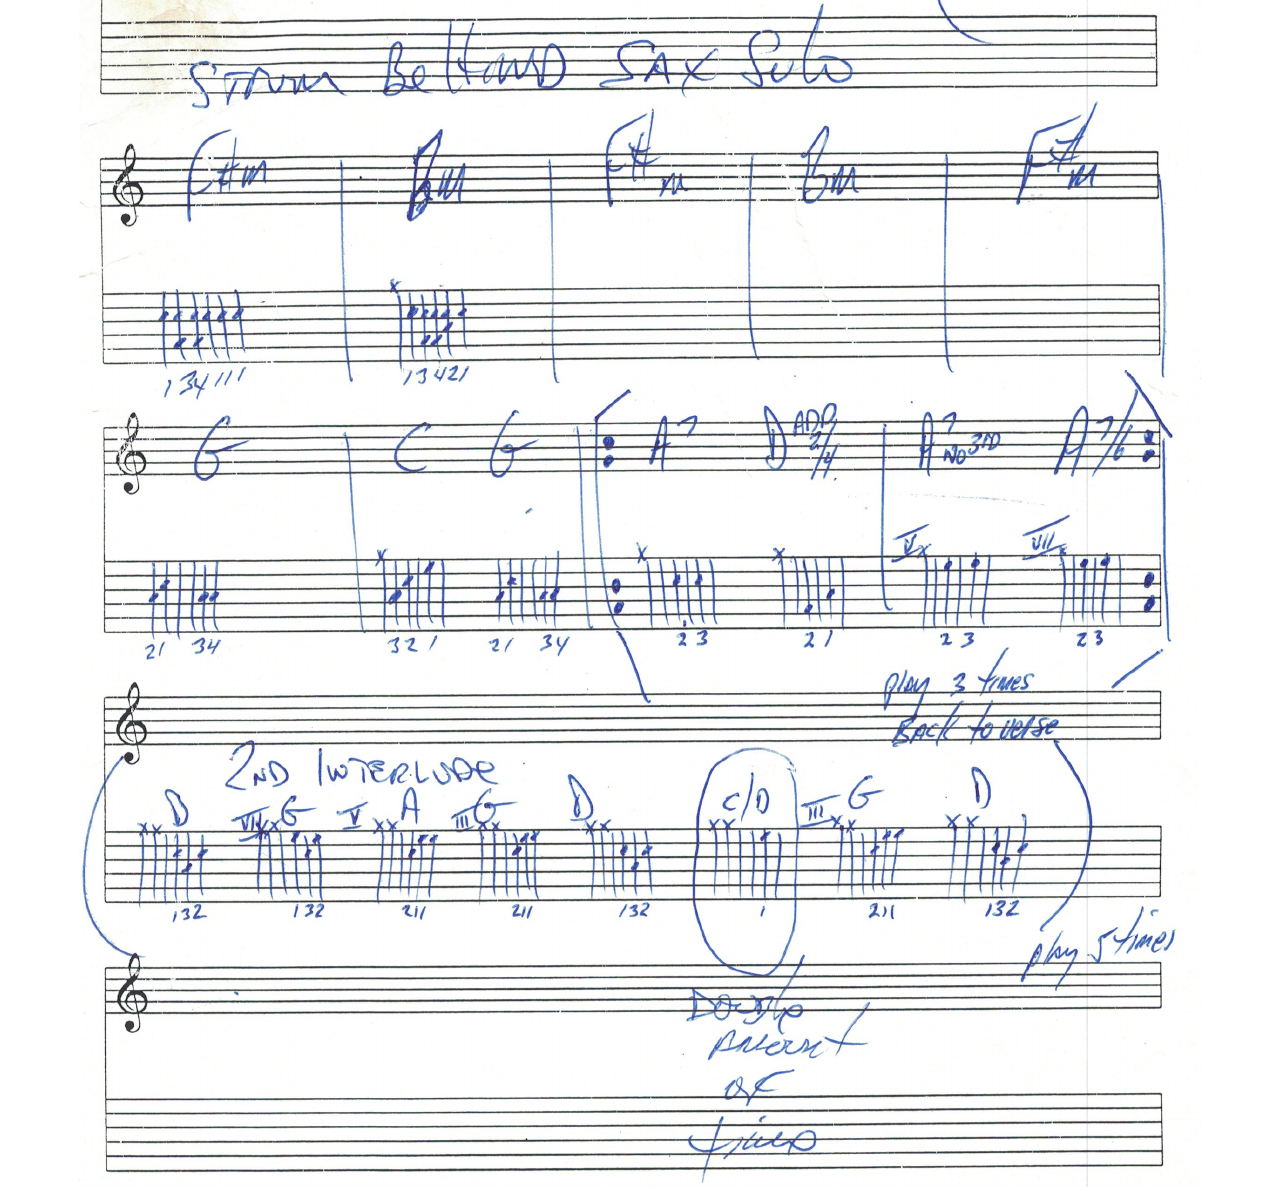 STRUM BEHIND SAX Solo
F#m Bm F#m Bm F#m
x
134111 13421
G C G A7 D ADD 2/4 A7 NO 3RD A7/6
x x x V x VII x
21 34 32 1 21 34 23 21 23 23
play 3 times
BACK to verse
2ND INTERLUDE
D G A G D C/D G D
xx VII xx V xx III xx xx xx III xx xx
132 132 211 211 132 1 211 132
play 5 times
Double
Amount
of
time